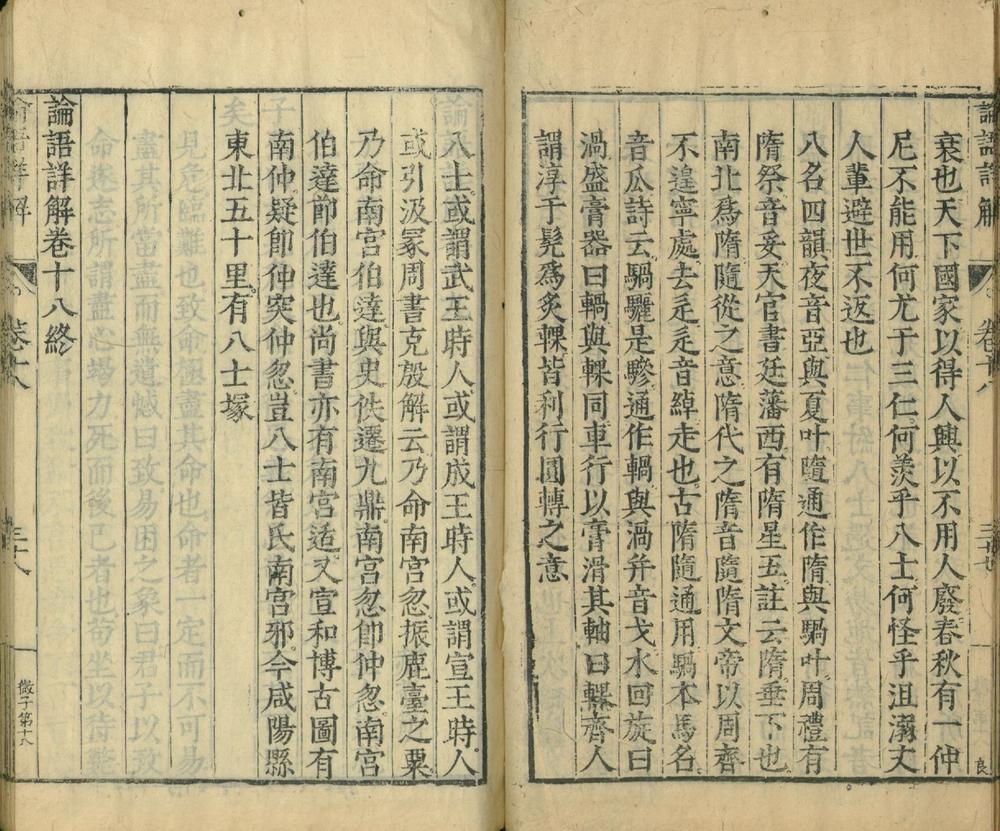 論語詳解
卷十八
三十七
良
衰也天下國家以得人興以不用人廢春秋有一仲
尼不能用何尤于三仁何羨乎八士何怪乎沮溺丈
人輩避世不返也
八名四韻夜音亞與夏叶隨通作隋與騧叶周禮有
隋祭音妥天官書廷藩西有隋星五註云隋垂下也
南北爲隋隨從之意隋代之隋音隨隋文帝以周齊
不遑寧處去辵辵音綽走也古隋隨通用騧本馬名
音瓜詩云騧驪是驂通作輠與渦幷音戈水回旋曰
渦盛膏器曰輠與輠同車行以膏滑其軸曰輠齊人
謂淳于髠爲炙輠皆利行圓轉之意
八士或謂武王時人或謂成王時人或謂宣王時人
或引汲冢周書克殷解云乃命南宮忽振鹿臺之粟
乃命南宮伯達與史佚遷九鼎南宮忽卽仲忽南宮
伯達節伯達也尚書亦有南宮适又宣和博古圖有
南仲疑卽仲突仲忽豈八士皆氏南宮邪今咸陽縣
東北五十里有八士塚
論語詳解卷十八終
論語詳解
卷十八
三十八
微子第十八